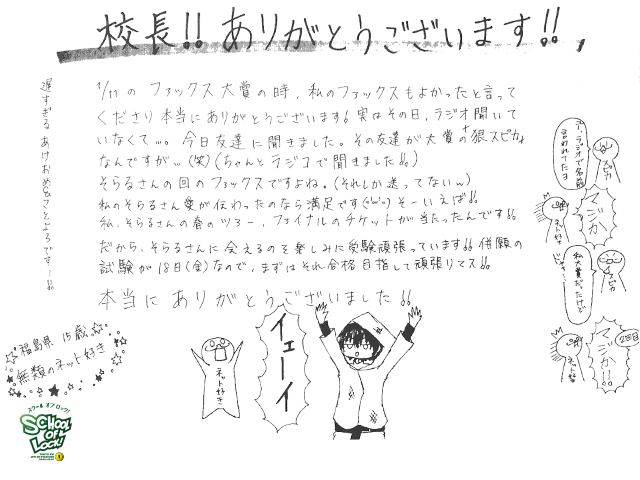 校長!! ありがとうございます!!,
1/11の ファックス大賞の時、私のファックスもよかったと言って
くださり本当にありがとうございます! 実はその日、ラジオ聞いて
いなくて…。今日友達に聞きました。その友達が大賞の「狼スピカ」
なんですが…(笑)(ちゃんとラジコで聞きました!!)
そらるさんの回のファックスですよね。(それしか送ってないw)
私のそらるさん愛が伝わったのなら満足です(o'ω'o) そーいえば!!
私、そらるさんの春のツアー、ファイナルのチケットが当たったんです!!
だから、そらるさんに会えるのを楽しみに受験頑張っています!! 併願の
試験が18日(金)なので、まずはそれ合格目指して頑張りマス!!
本当にありがとうございました!!
遅すぎる あけおめことよろです…!!
ラジオで名前
言われてたよ
スピカ
マジか
ネット好き
私大賞だったけど
スピカ
2回目
マジか!!
ネット好き
イェーイ
ネット好き
福島県 15歳
無類のネット好き
スクール オブ ロック!
SCHOOL
OF
LOCK!